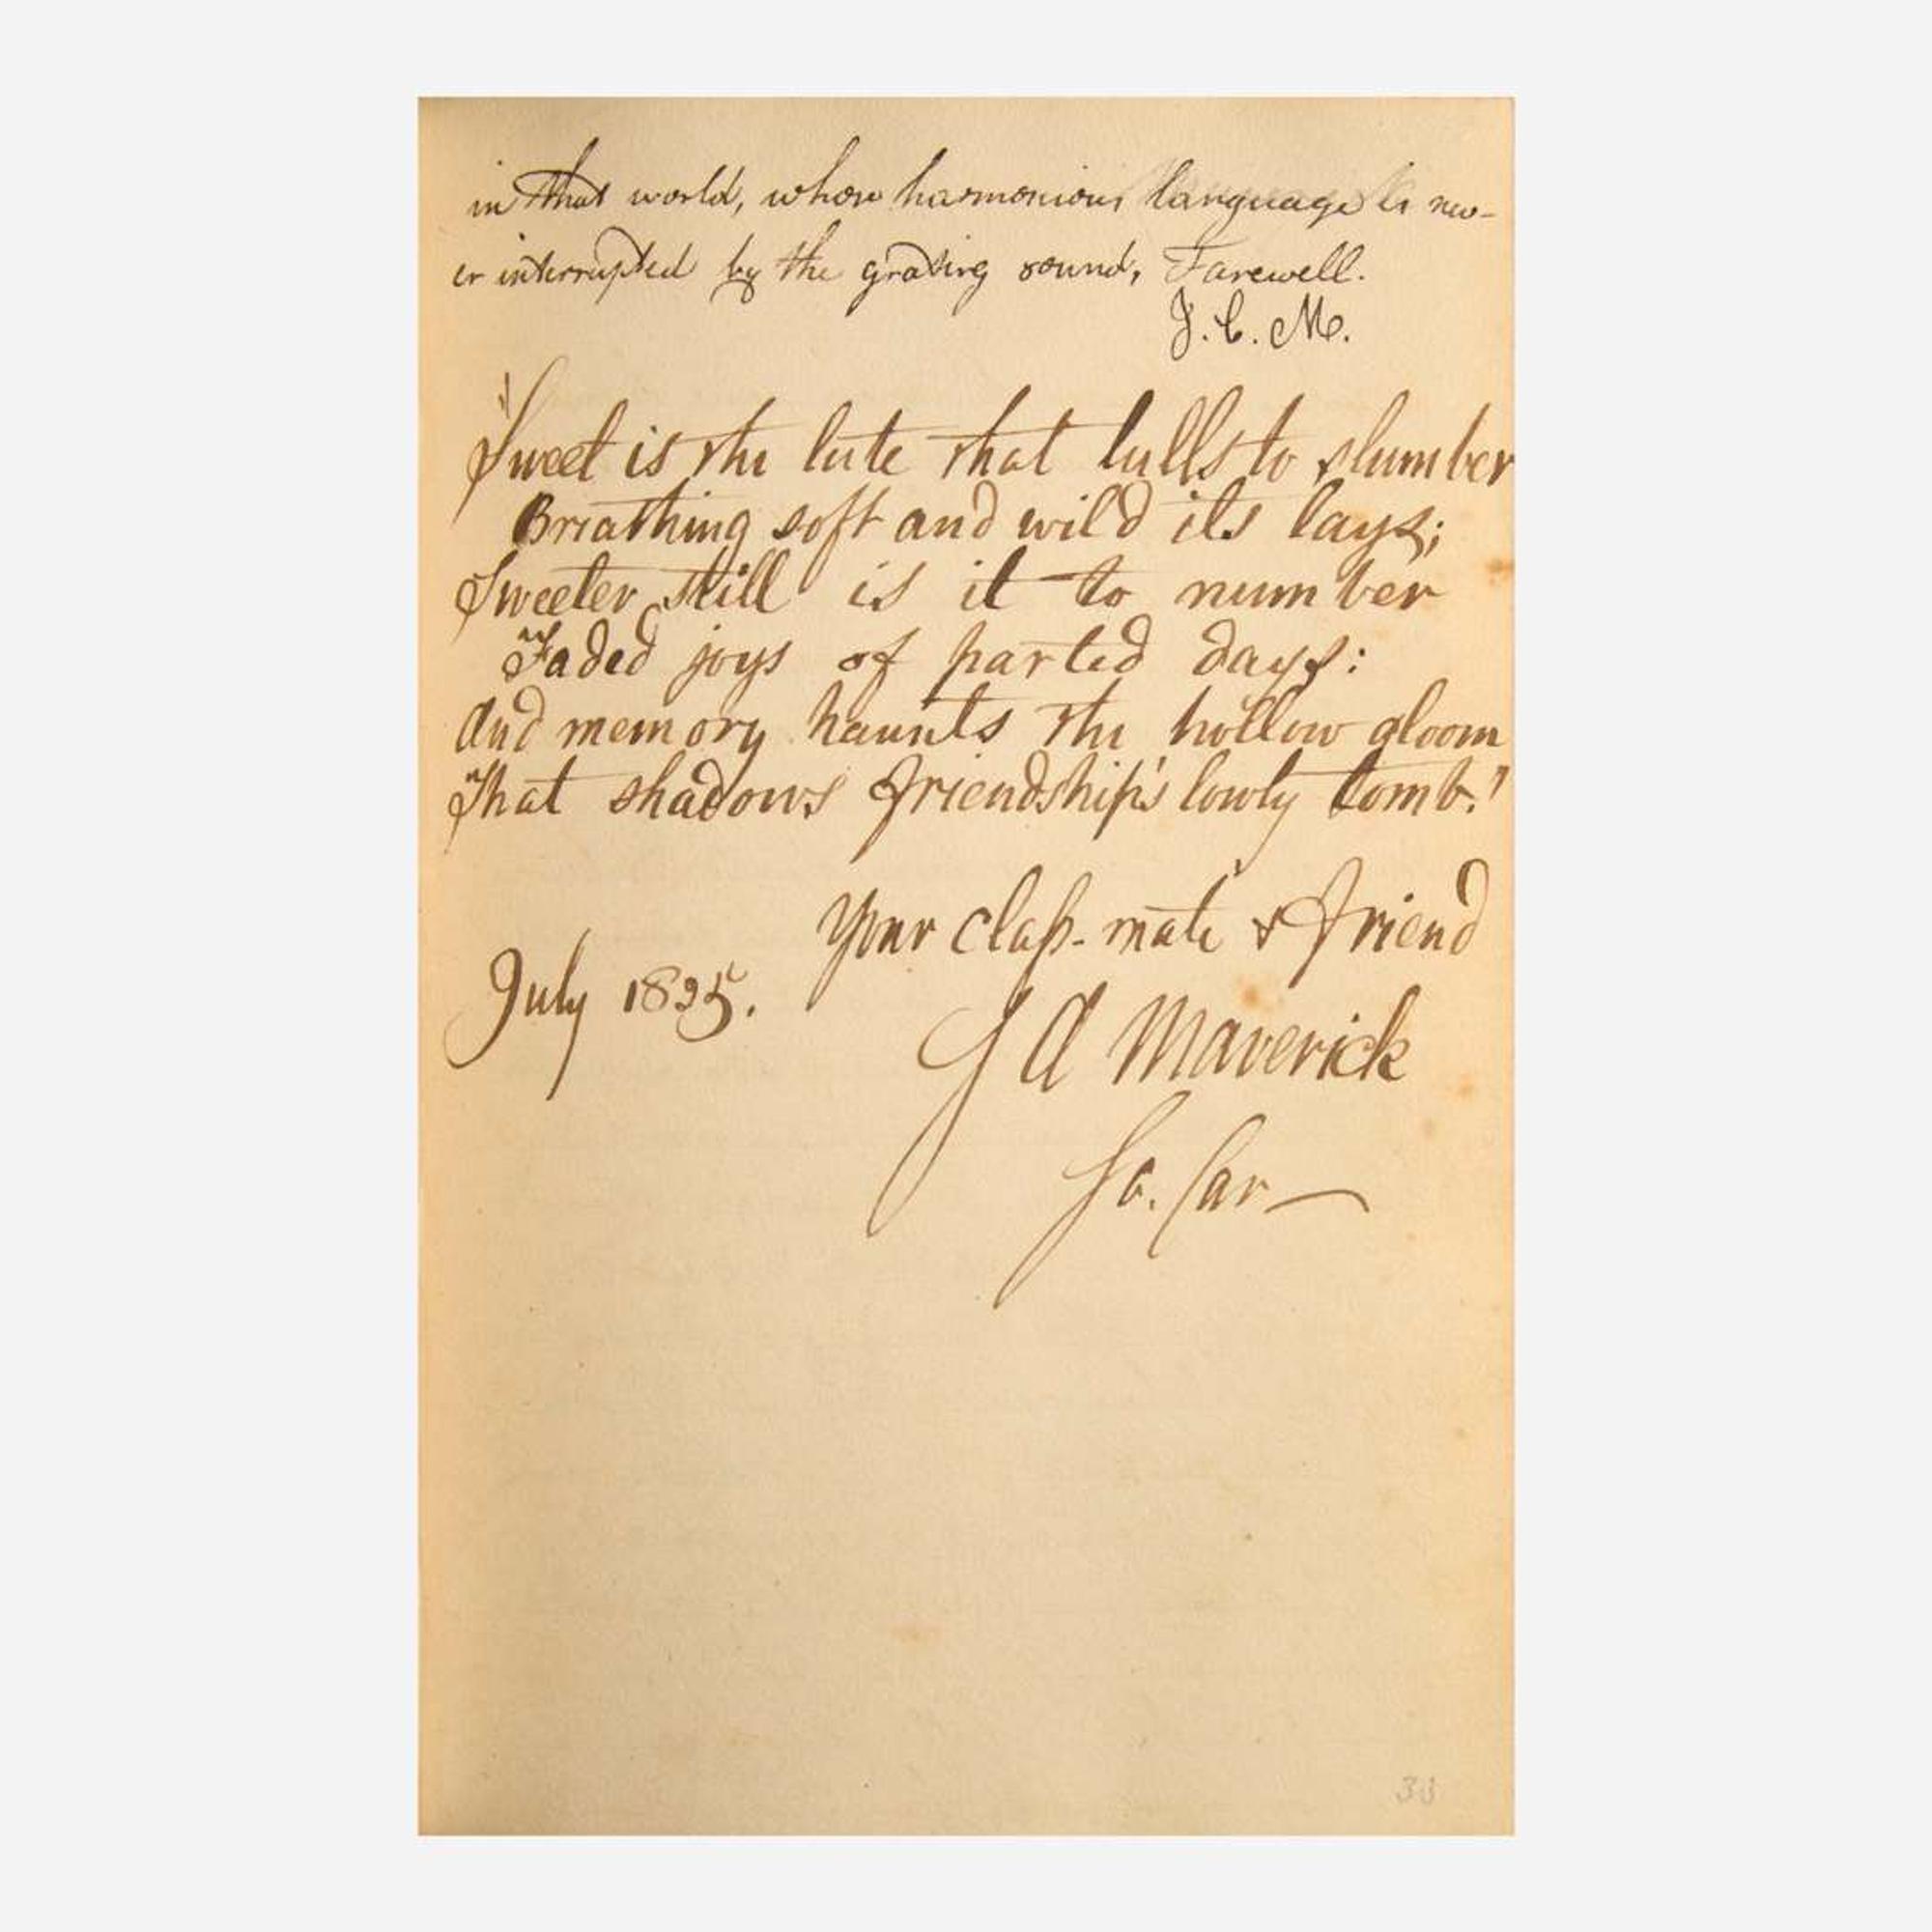 in that world, whose harmonious language is nev-
er interrupted by the grating sound, Farewell.
J. C. M.
"Sweet is the lute that lulls to slumber
Breathing soft and wild its lays;
Sweeter still is it to number
"Faded joys of parted days:
And memory haunts the hollow gloom
"That shadows friendship's lowly tomb."
Your class-mate & friend
July 1825.
S A Maverick
So. Car
33